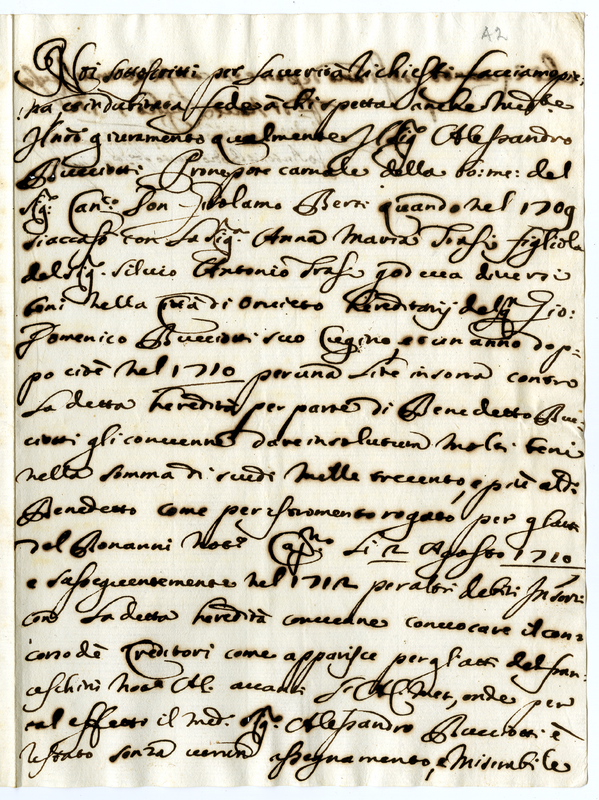 A2
Noi sottoscritti per la verità richiesti facciamo pie:
na et indubitata fede à chi spetta anche med.te
Il nro giuramento qualmente Il Sig.r Alessandro
Bucciotti Pronepote carnale della bo: me: del
Sig.r Can.co Don Girolamo Berti quando nel 1709
si accasò con la Sig.ra Anna Maria Trasi figliola
del Sig.r Silvio Antonio Trasi godeva diversi
beni nella Città di Orvieto hereditarij del Sig.r Gio:
Domenico Bucciotti suo Cugino et un anno dop=
po cioè nel 1710 per una Lite insorta contro
La detta heredità per parte di Benedetto Buc=
ciotti gli convenne dare in solutum molti beni
nella somma di scudi mille trecento, e più al d.o
Benedetto come per istromento rogato per gl'atti
del Bonanni Not.o li 2 Agosto 1710
e susseguentemente nel 1712 per altri debiti Insorti
con La detta heredità convenne convocare il con=
corso de Creditori come apparisce per gl'atti del fran=
ceschini Not.o avanti onde per
tal effetto il med. Sig.r Alessandro Bucciotti è
restato senza verun assegnamento, e Miserabile